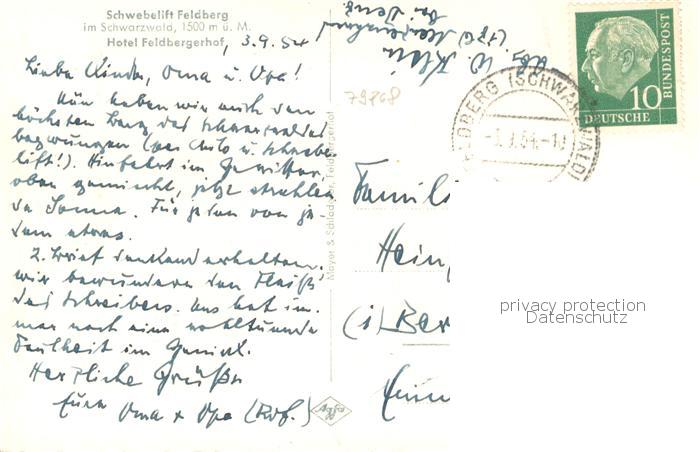 Schwebelift Feldberg
im Schwarzwald, 1500 m ü. M.
Hotel Feldbergerhof, 3.9.54
Liebe Kinder, Oma u. Opa!
Nun haben wir auch den
höchsten Berg des Schwarzwaldes
bezwungen (per Auto u. Schwebe-
lift!). Hinfahrt im Gewitter,
oben gemischt, jetzt strahlen
de Sonne. Für jeden von je-
dem etwas.
2. Brief dankend erhalten,
wir bewundern den Fleiß
des Schreibers. Uns hat im-
mer noch eine wohltuende
Faulheit im Genick.
Herzliche Grüße
Eure Oma + Opa (Rof.)
Mayer & Schlad Feldbergerhof
79868
Abs. W. Klein
FELDBERG (SCHWARZWALD)
-3.9.54.-10
10
DEUTSCHE
BUNDESPOST
Famili
Hein
(1) Ber
privacy protection
Datenschutz